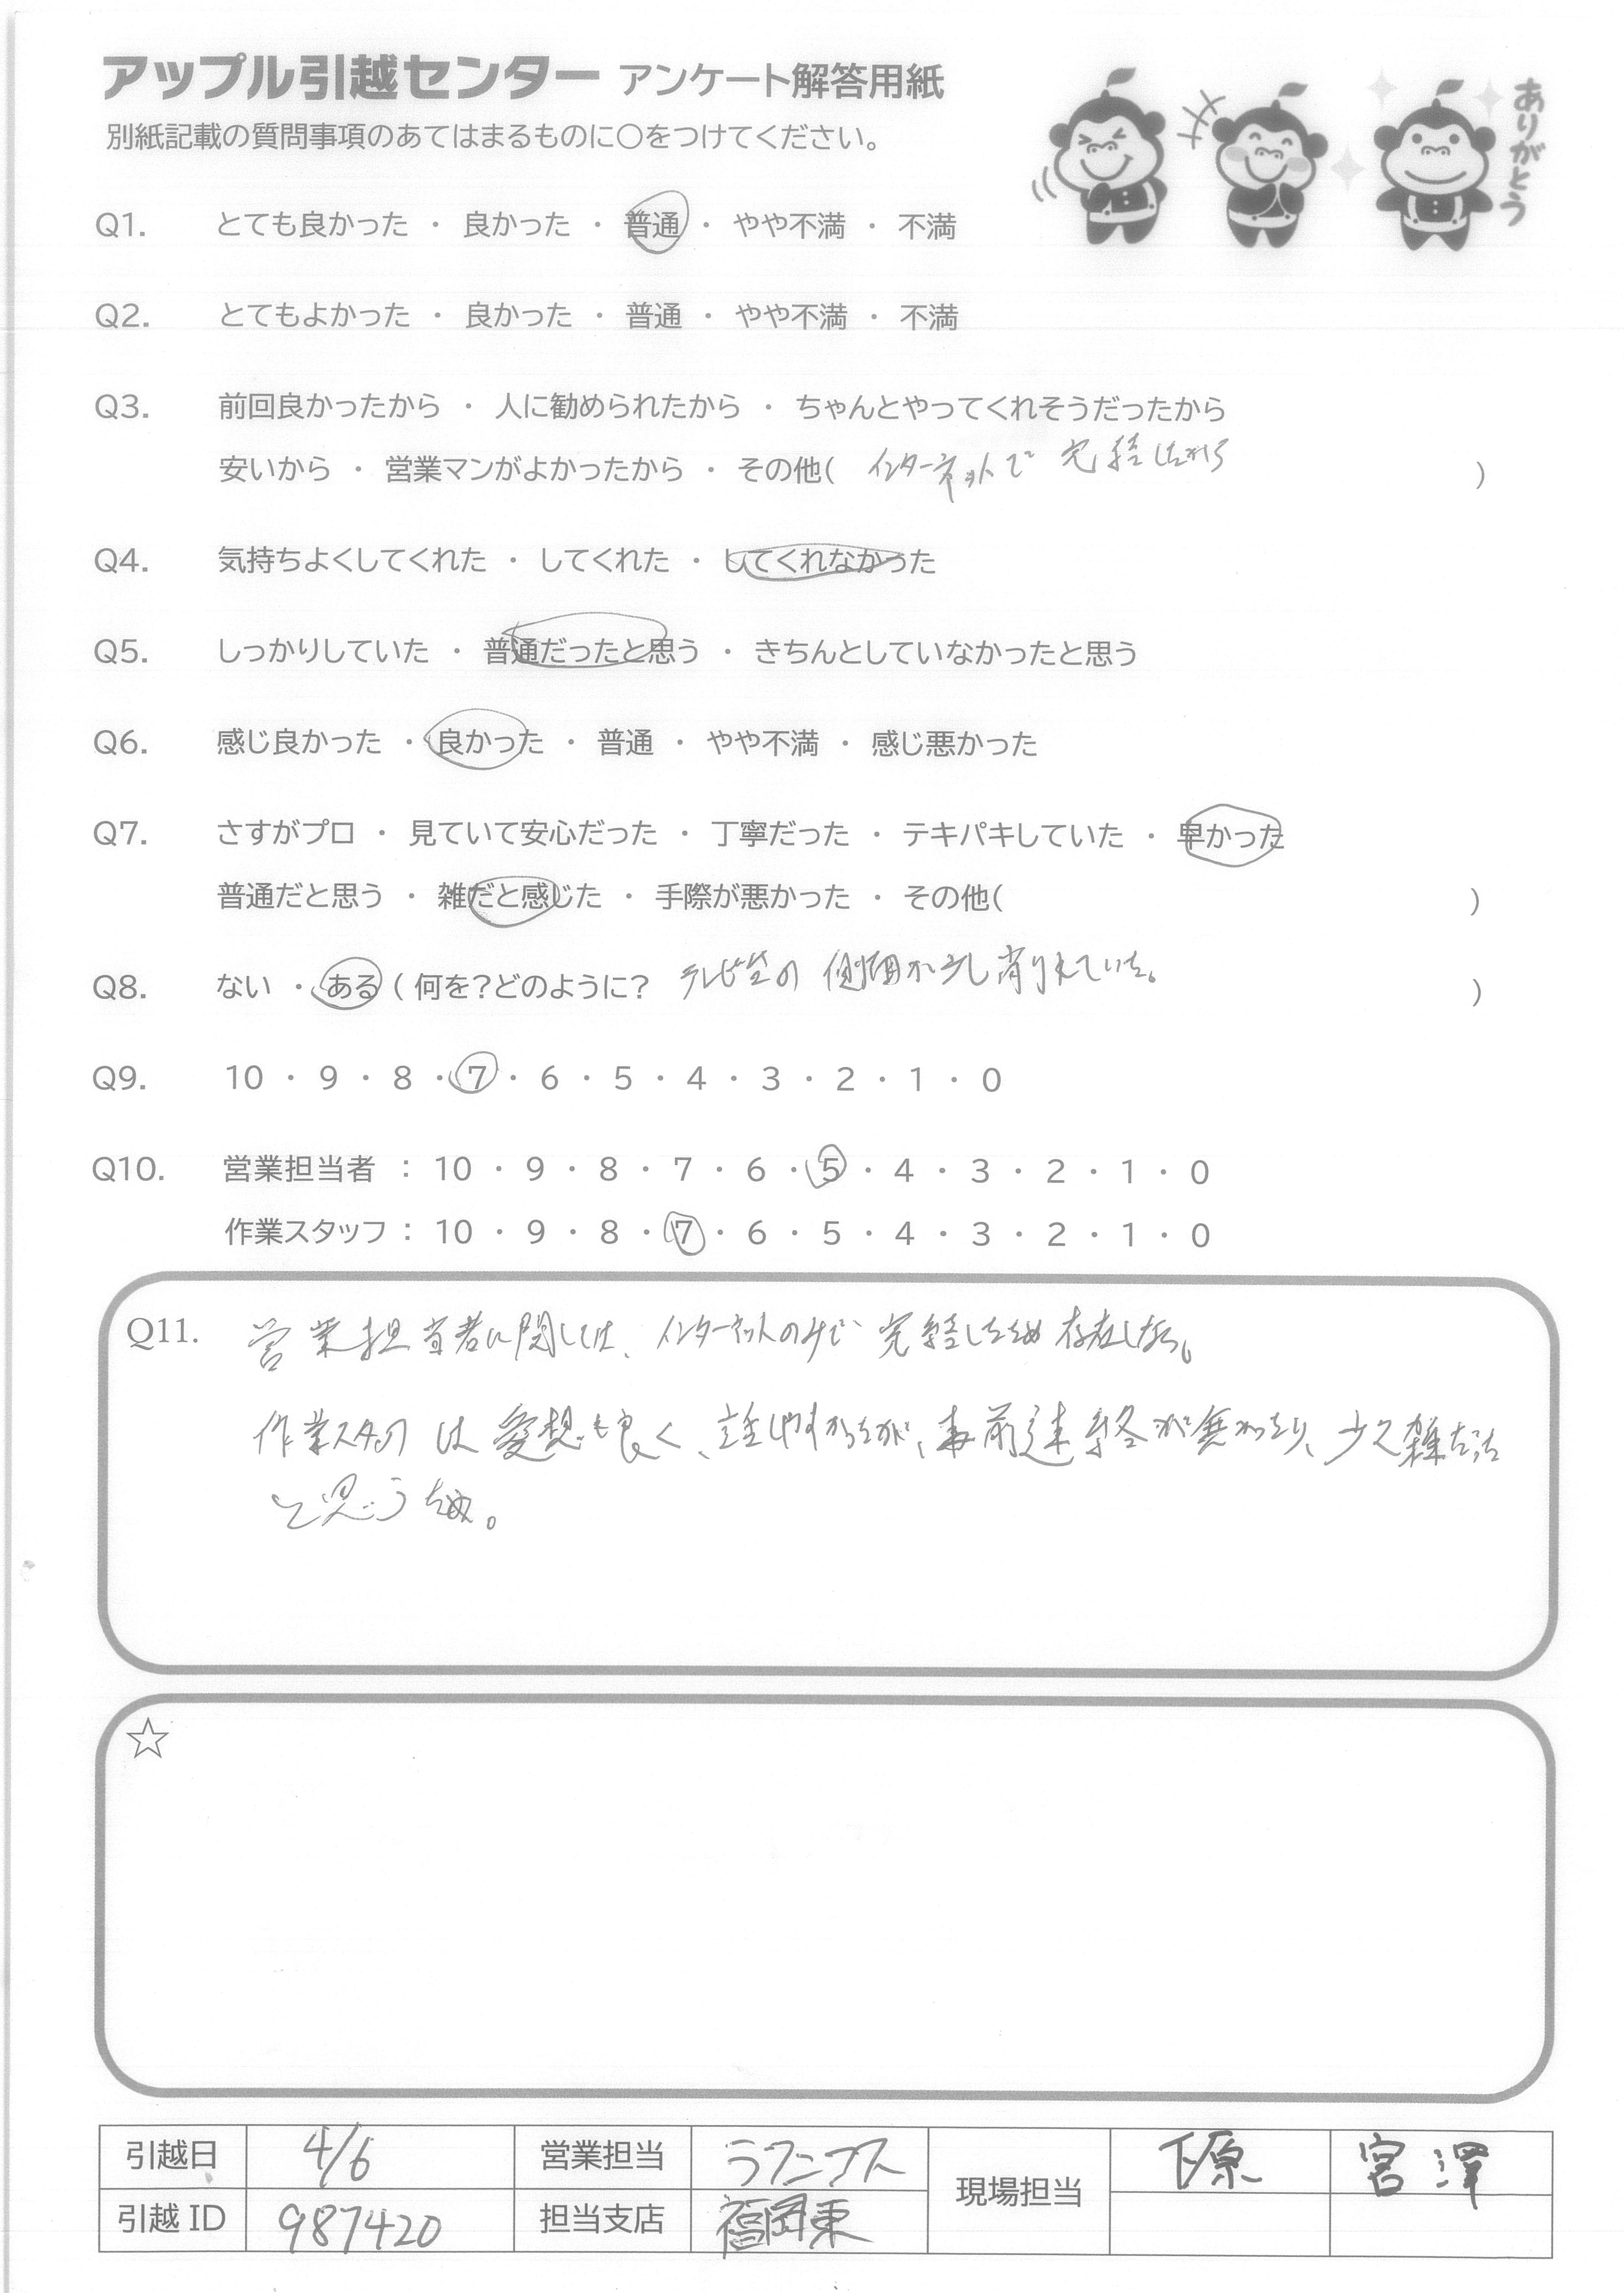 アップル引越センター アンケート解答用紙
別紙記載の質問事項のあてはまるものに〇をつけてください。
ありがとう
Q1. とても良かった ・ 良かった ・ 普通 ・ やや不満 ・ 不満
Q2. とてもよかった ・ 良かった ・ 普通 ・ やや不満 ・ 不満
Q3. 前回良かったから ・ 人に勧められたから ・ ちゃんとやってくれそうだったから
安いから ・ 営業マンがよかったから ・ その他( インターネットで完結したから )
Q4. 気持ちよくしてくれた ・ してくれた ・ してくれなかった
Q5. しっかりしていた ・ 普通だったと思う ・ きちんとしていなかったと思う
Q6. 感じ良かった ・ 良かった ・ 普通 ・ やや不満 ・ 感じ悪かった
Q7. さすがプロ ・ 見ていて安心だった ・ 丁寧だった ・ テキパキしていた ・ 早かった
普通だと思う ・ 雑だと感じた ・ 手際が悪かった ・ その他( )
Q8. ない ・ ある ( 何を?どのように? テレビ台の側面が少し削れていた。 )
Q9. 10 ・ 9 ・ 8 ・ 7 ・ 6 ・ 5 ・ 4 ・ 3 ・ 2 ・ 1 ・ 0
Q10. 営業担当者 : 10 ・ 9 ・ 8 ・ 7 ・ 6 ・ 5 ・ 4 ・ 3 ・ 2 ・ 1 ・ 0
作業スタッフ : 10 ・ 9 ・ 8 ・ 7 ・ 6 ・ 5 ・ 4 ・ 3 ・ 2 ・ 1 ・ 0
Q11. 営業担当者に関しては、インターネットのみで完結したため存在しない。
作業スタッフは愛想も良く、話しやすかったが、事前連絡が無かったり、少々雑だった
と思うため。
☆
引越日 4/6 営業担当 現場担当 下原 宮澤
引越ID 987420 担当支店 福岡東